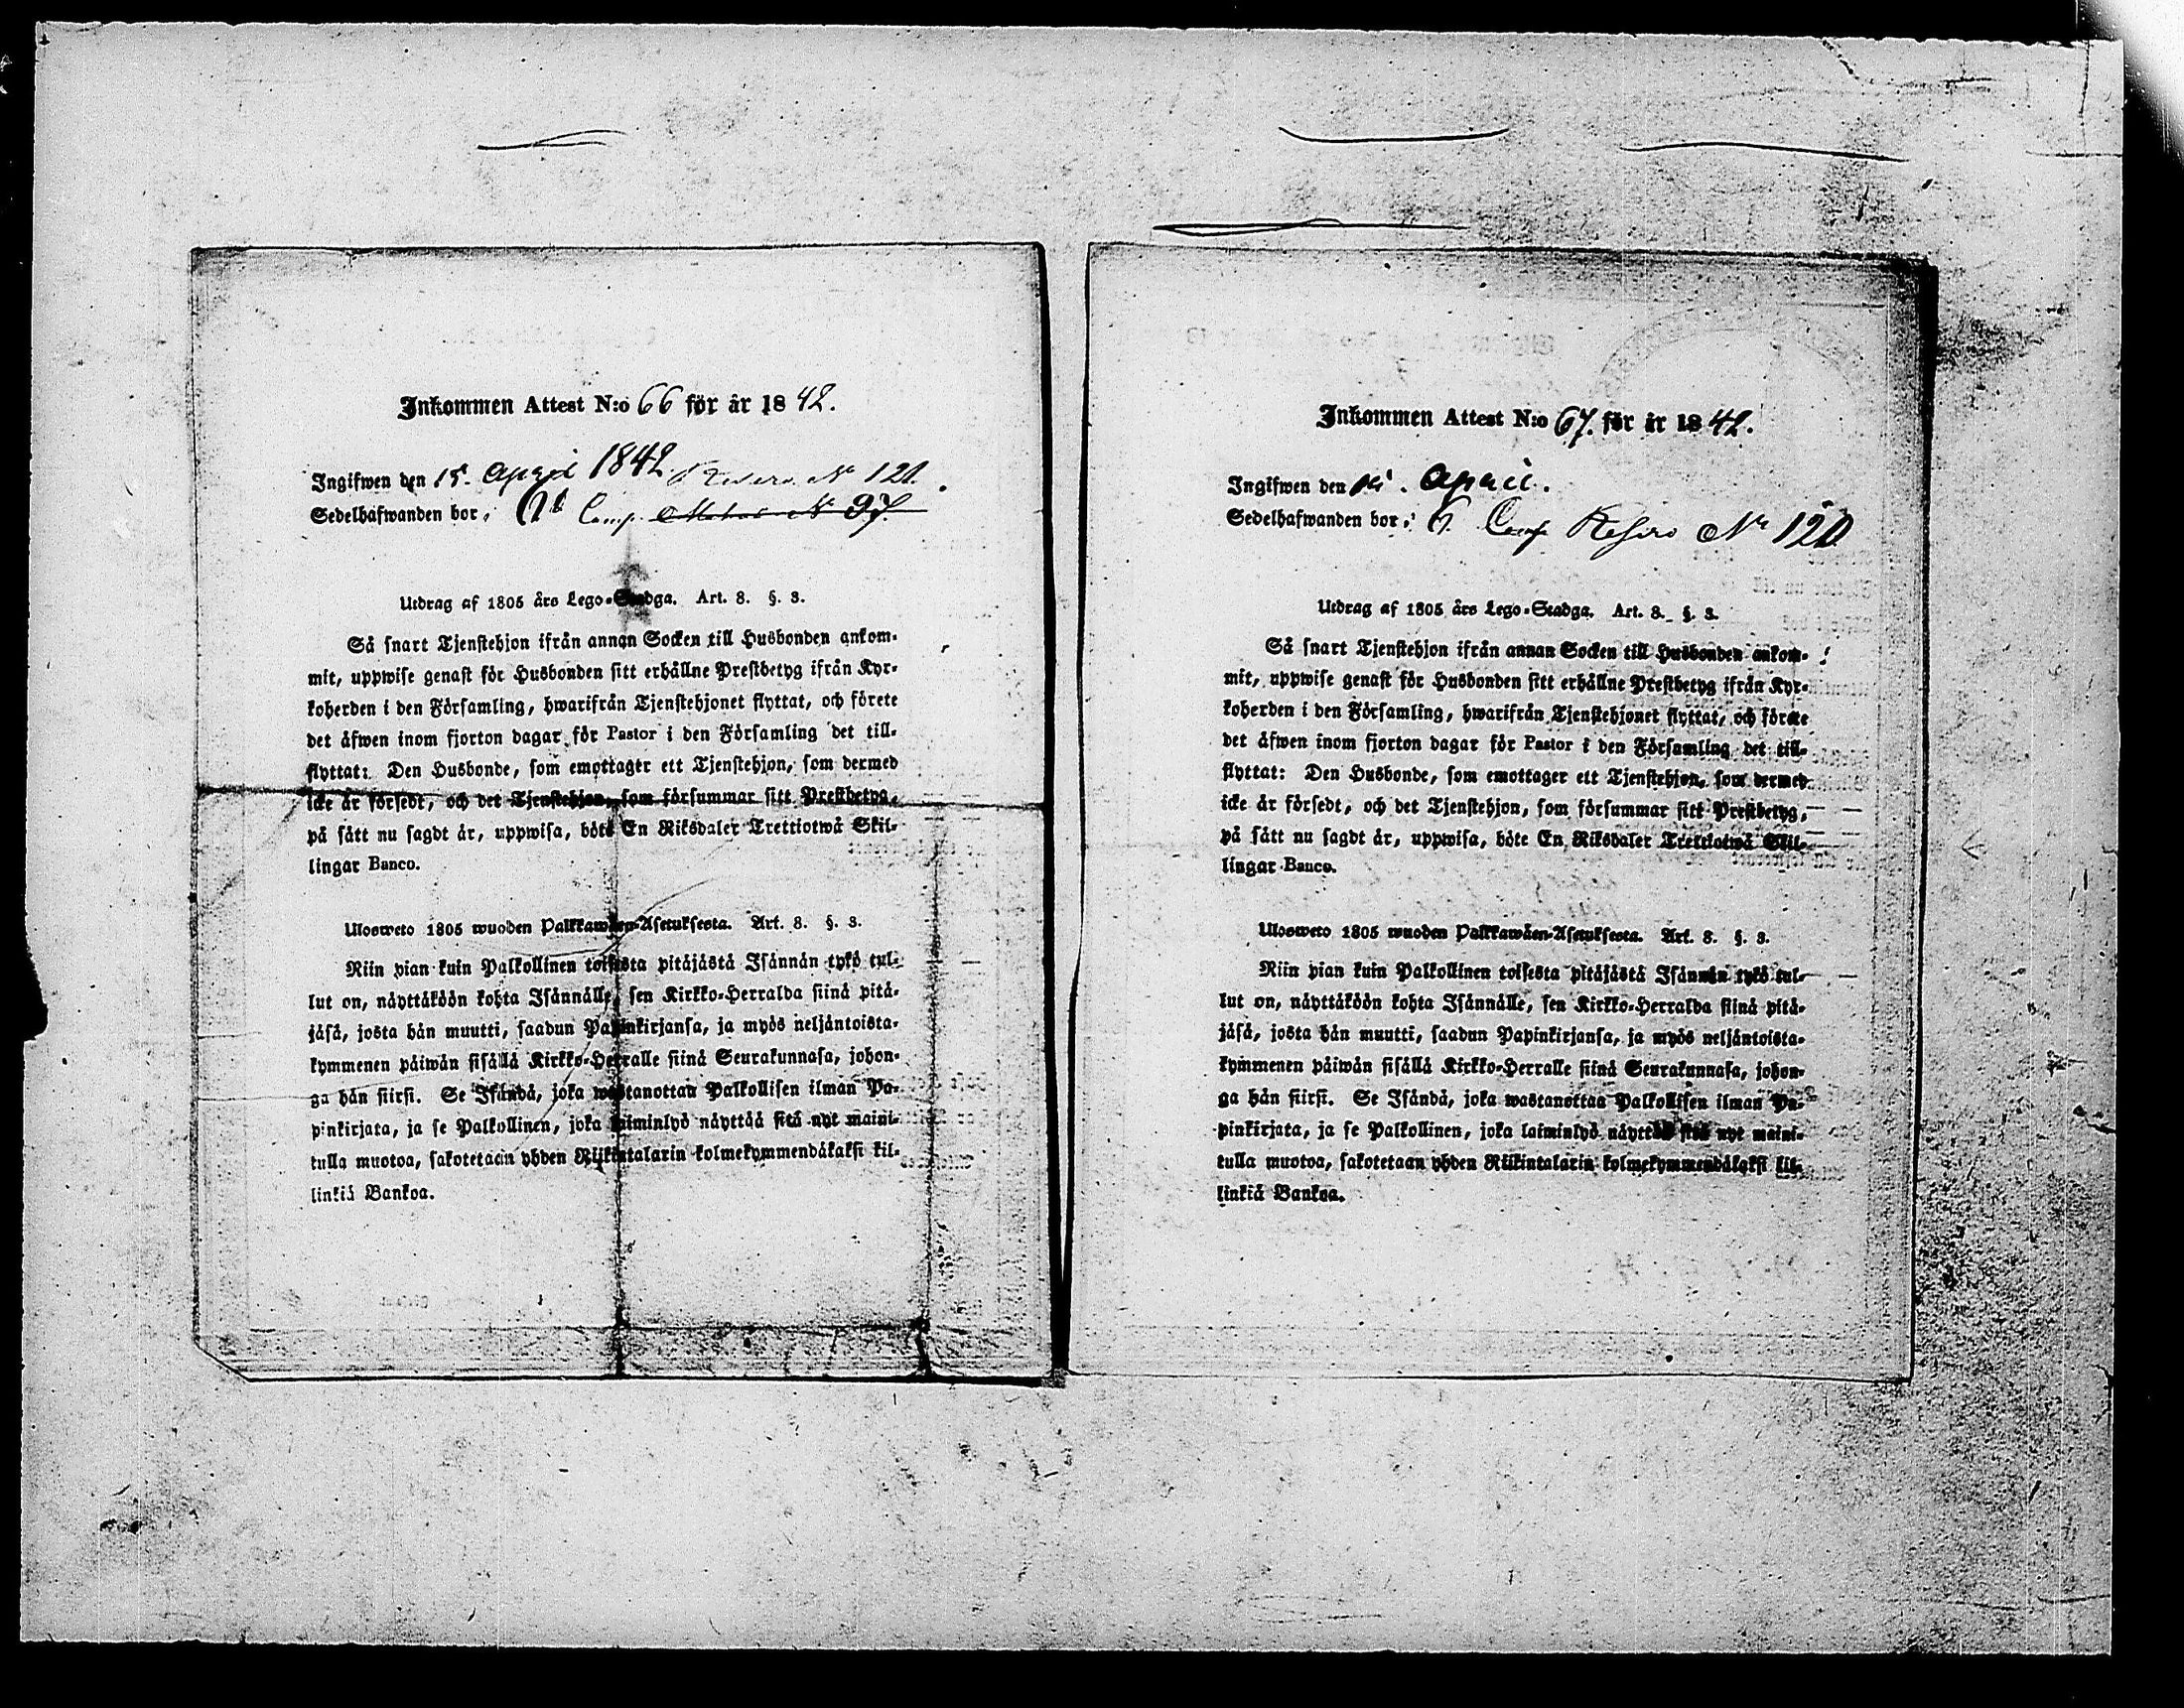 Inkommen Attest N:o 66 för år 1842.
Ingifwen den 15. April 1842 N 121.
Sedelhafwanden bor, Comp. N 97.
Utdrag af 1805 års Lego-Stadga. Art. 8. §. 3.
Så snart Tjenstehjon ifrån annan Socken till Husbonden ankom-
mit, uppwise genast för Husbonden sitt erhållne Prestbetyg ifrån Kyr-
koherden i den Församling, hwarifrån Tjenstehjonet flyttat, och förete
det äfwen inom fjorton dagar för Pastor i den Församling det till-
flyttat: Den Husbonde, som emottager ett Tjenstehjon, som dermed
icke är försedt, och det Tjenstehjon, som försummar sitt Prestbetyg,
på sätt nu sagdt är, uppwisa, böte En Riksdaler Trettiotwå Skil-
lingar Banco.
Ulosweto 1805 wuoden Palkkawäen-Asetuksesta. Art. 8. §. 3.
Niin pian kuin Palkollinen toisesta pitäjästä Isännän tykö tul-
lut on, näyttäköön kohta Isännälle, sen Kirkko-Herralda siinä pitä-
jäsä, josta hän muutti, saadun Papinkirjansa, ja myös neljäntoista-
kymmenen päiwän sisällä Kirkko-Herralle siinä Seurakunnasa, johon-
ga hän siirsi. Se Isändä, joka wastanottaa Palkollisen ilman Pa-
pinkirjata, ja se Palkollinen, joka laiminlyö näyttää sitä nyt maini-
tulla muotoa, sakotetaan yhden Riikintalarin kolmekymmendäkaksi kil-
linkiä Bankoa.
Inkommen Attest N:o 67. för år 1842.
Ingifwen den April.
Sedelhafwanden bor, 6. Comp Nr 120
Utdrag af 1805 års Lego-Stadga. Art. 8. §. 3.
Så snart Tjenstehjon ifrån annan Socken till Husbonden ankom-
mit, uppwise genast för Husbonden sitt erhållne Prestbetyg ifrån Kyr-
koherden i den Församling, hwarifrån Tjenstehjonet flyttat, och förete
det äfwen inom fjorton dagar för Pastor i den Församling det till-
flyttat: Den Husbonde, som emottager ett Tjenstehjon, som dermed
icke är försedt, och det Tjenstehjon, som försummar sitt Prestbetyg,
på sätt nu sagdt är, uppwisa, böte En Riksdaler Trettiotwå Skil-
lingar Banco.
Ulosweto 1805 wuoden Palkkawäen-Asetuksesta. Art. 8. §. 3.
Niin pian kuin Palkollinen toisesta pitäjästä Isännän tykö tul-
lut on, näyttäköön kohta Isännälle, sen Kirkko-Herralda siinä pitä-
jäsä, josta hän muutti, saadun Papinkirjansa, ja myös neljäntoista-
kymmenen päiwän sisällä Kirkko-Herralle siinä Seurakunnasa, johon-
ga hän siirsi. Se Isändä, joka wastanottaa Palkollisen ilman Pa-
pinkirjata, ja se Palkollinen, joka laiminlyö näyttää sitä nyt maini-
tulla muotoa, sakotetaan yhden Riikintalarin kolmekymmendäkaksi kil-
linkiä Bankoa.